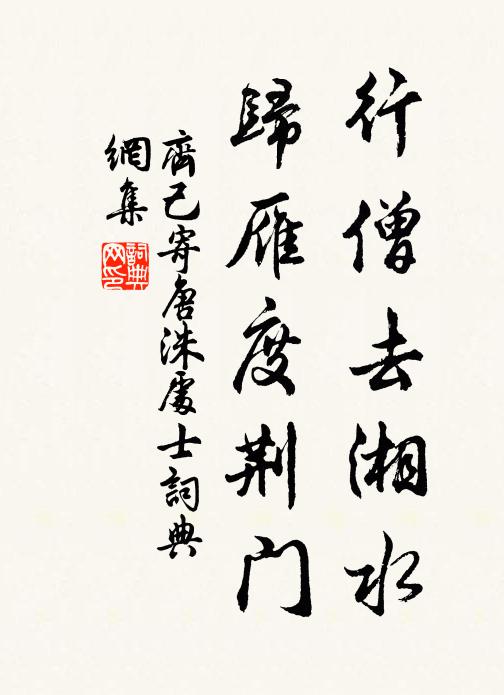 行僧去湘水
歸雁度荆門
齊己寄唐洙處士詞典
網集
詞典
网印